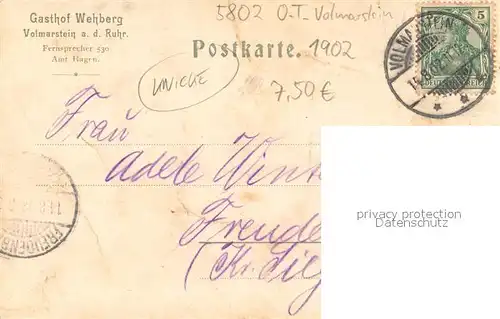 Gasthof Wehberg
Volmarstein a. d. Ruhr.
Fernsprecher 530
Amt Hagen.
5802 O.-T. Volmarstein
Postkarte. 1902
UNICKE
7,50 €
VOLMARSTEIN
5
Frau
Adele Wint
Freude
(Kr. Sieg
FREUDENB
privacy protection
Datenschutz